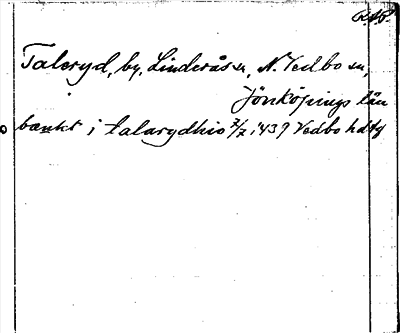 R.A.P.
Taleryd, by, Linderås sn, N. Vedbo sn,
Jönköpings län
bænkt i talarydhio 7/7 1439 Vedbo hdtg